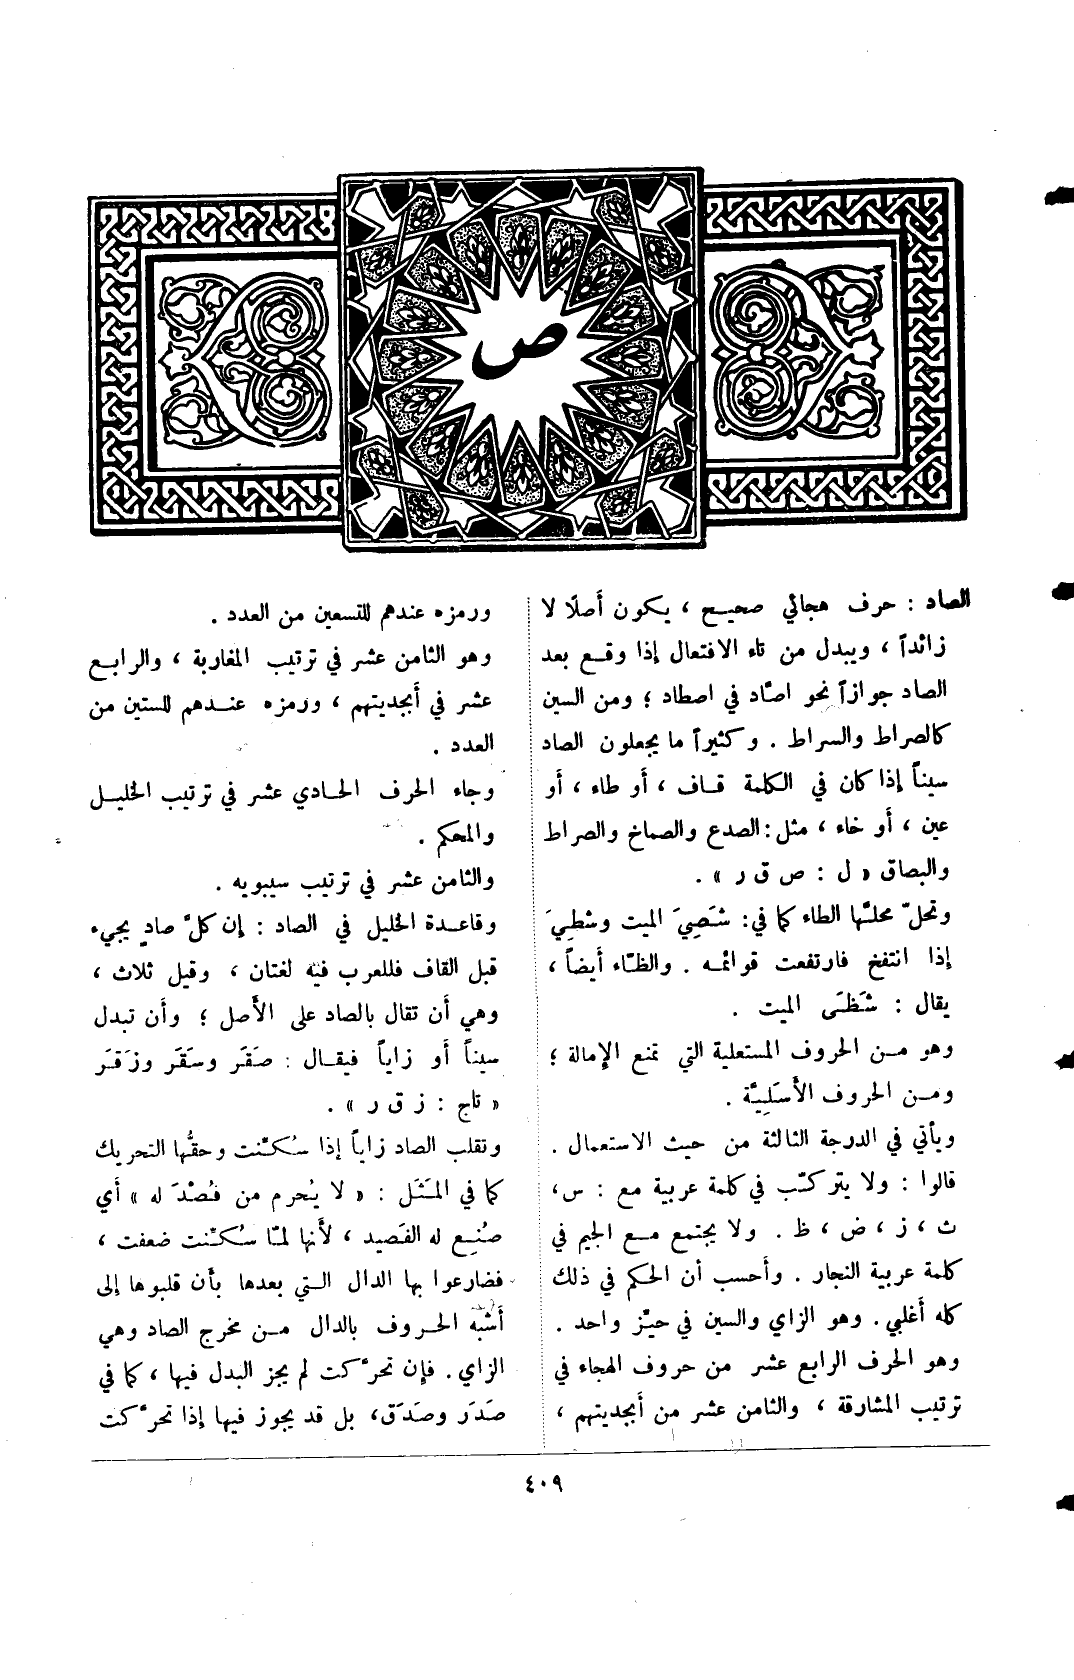 ص
الصاد : حرف هجائي صحيح ، يكون أصلًا لا
زائداً ، ويبدل من تاء الافتعال إذا وقع بعد
الصاد جوازاً نحو اصّاد في اصطاد ؛ ومن السين
كالصراط والسراط . وكثيراً ما يجعلون الصاد
سيناً إذا كان في الكلمة قاف ، أو طاء ، أو
عين ، أو خاء ، مثل : الصدع والصماخ والصراط
والبصاق « ل : ص ق ر » .
وتحلّ محلّها الطاء كما في : شَصِيَ الميت وشطِيَ
إذا انتفخ فارتفعت قوائمه . والظاء أيضاً ،
يقال : شَظَى الميت .
وهو من الحروف المستعلية التي تمنع الإمالة ؛
ومن الحروف الأسَلِيّة .
ويأتي في الدرجة الثالثة من حيث الاستعمال .
قالوا : ولا يتركّب في كلمة عربية مع : س ،
ث ، ز ، ض ، ظ . ولا يجتمع مع الجيم في
كلمة عربية النجار . وأحسب أن الحكم في ذلك
كله أغلبي . وهو الزاي والسين في حيّز واحد .
وهو الحرف الرابع عشر من حروف الهجاء في
ترتيب المشارقة ، والثامن عشر من أبجديتهم ،
ورمزه عندهم للتسعين من العدد .
وهو الثامن عشر في ترتيب المغاربة ، والرابع
عشر في أبجديتهم ، ورمزه عندهم للستين من
العدد .
وجاء الحرف الحادي عشر في ترتيب الخليل
والمحكم .
والثامن عشر في ترتيب سيبويه .
وقاعدة الخليل في الصاد : إن كلّ صادٍ يجيء
قبل القاف فللعرب فيه لغتان ، وقيل ثلاث ،
وهي أن تقال بالصاد على الأصل ؛ وأن تبدل
سيناً أو زاياً فيقال : صَقَر وسَقَر وزَقَر
« تاج : ز ق ر » .
وتقلب الصاد زاياً إذا سُكّنت وحقُّها التحريك
كما في المَثَل : « لا يُحرم من فُصْدَ له » أي
صُنِع له الفَصيد ، لأنها لمّا سُكّنت ضعفت ،
فضارعوا بها الدال التي بعدها بأن قلبوها إلى
أشبه الحروف بالدال من مخرج الصاد وهي
الزاي . فإن تحرّكت لم يجز البدل فيها ، كما في
صَدَر وصَدَق ، بل قد يجوز فيها إذا تحرّكت
٤٠٩